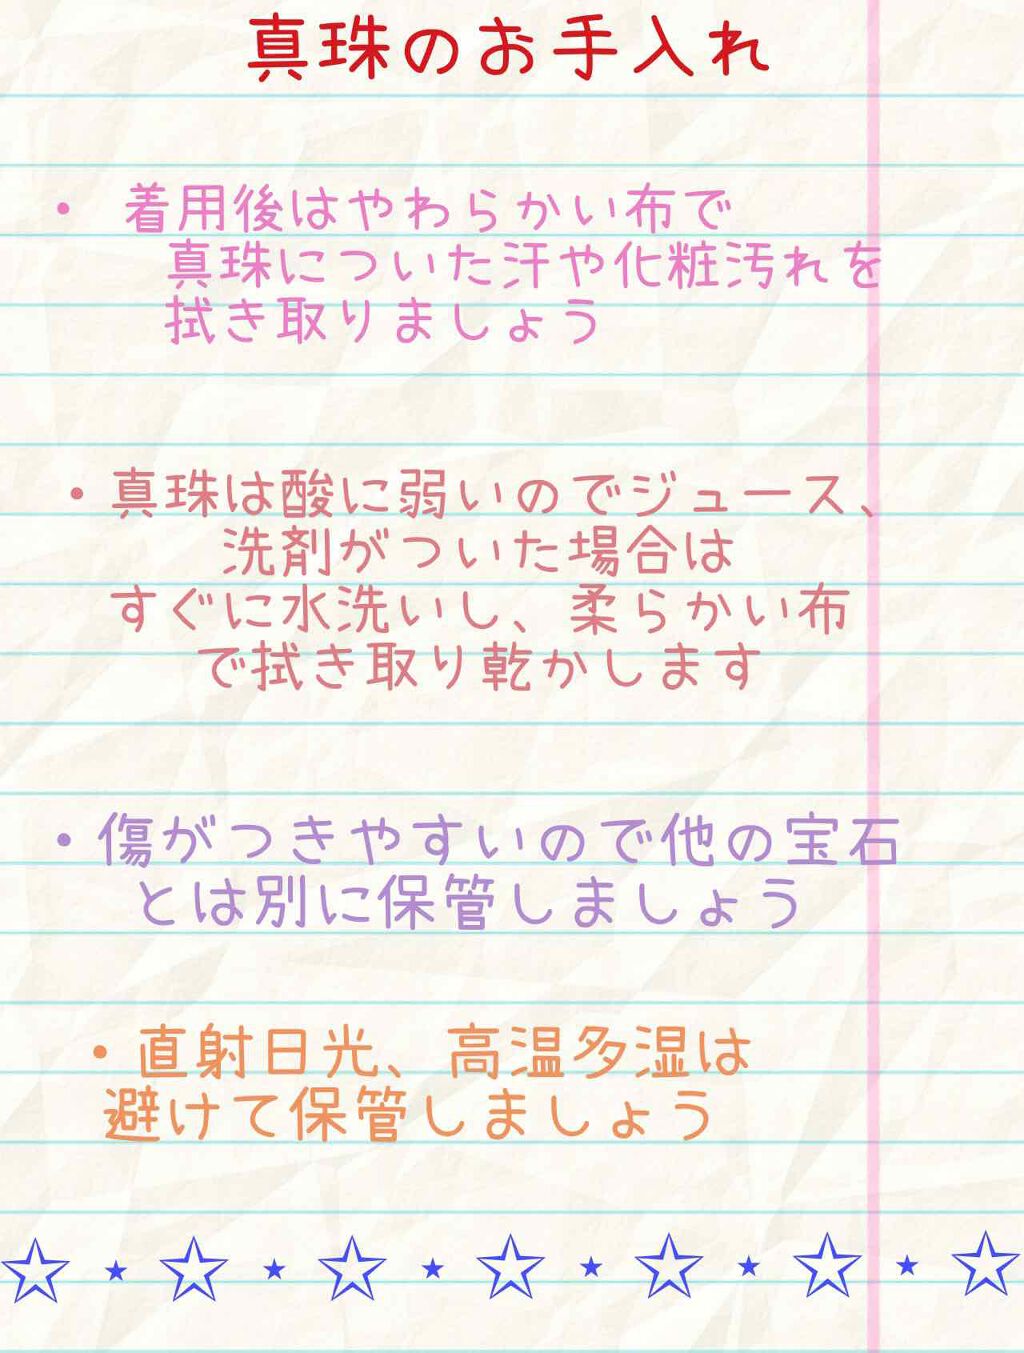 真珠のお手入れ
・ 着用後はやわらかい布で
真珠についた汗や化粧汚れを
拭き取りましょう
・真珠は酸に弱いのでジュース、
洗剤がついた場合は
すぐに水洗いし、柔らかい布
で拭き取り乾かします
・傷がつきやすいので他の宝石
とは別に保管しましょう
・直射日光、高温多湿は
避けて保管しましょう